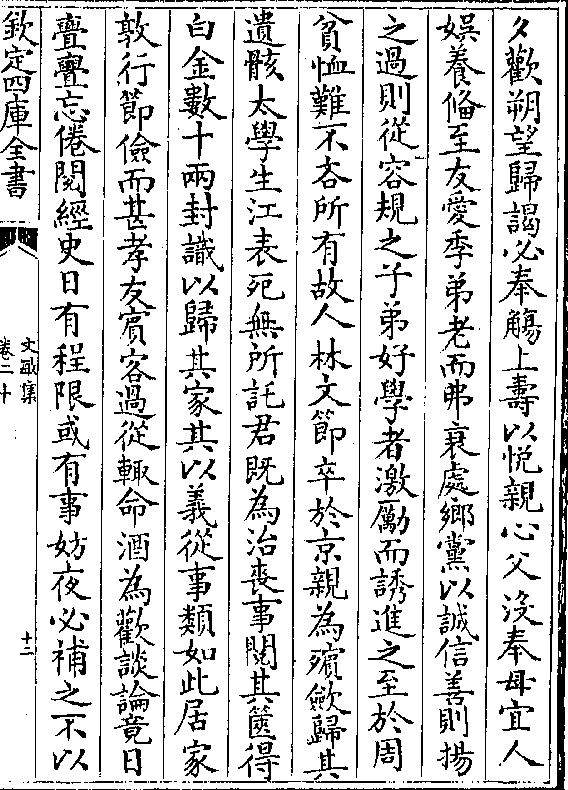 夕歡朔望歸謁必奉觴上壽以悅親心父沒奉母宜人
娛養備至友愛季弟老而弗衰處鄉黨以誠信善則揚
之過則從容規之子弟好學者激勵而誘進之至於周
貧恤難不吝所有故人林文節卒於京親為殯斂歸其
遺骸太學生江表死無所託君既為治喪事閱其篋得
白金數十兩封識以歸其家其以義從事類如此居家
敦行節儉而甚孝友賓客過從輙命酒為歡談論竟日
亹亹忘倦閱經史日有程限或有事妨夜必補之不以
欽定四庫全書
文敏集
卷二十
十二